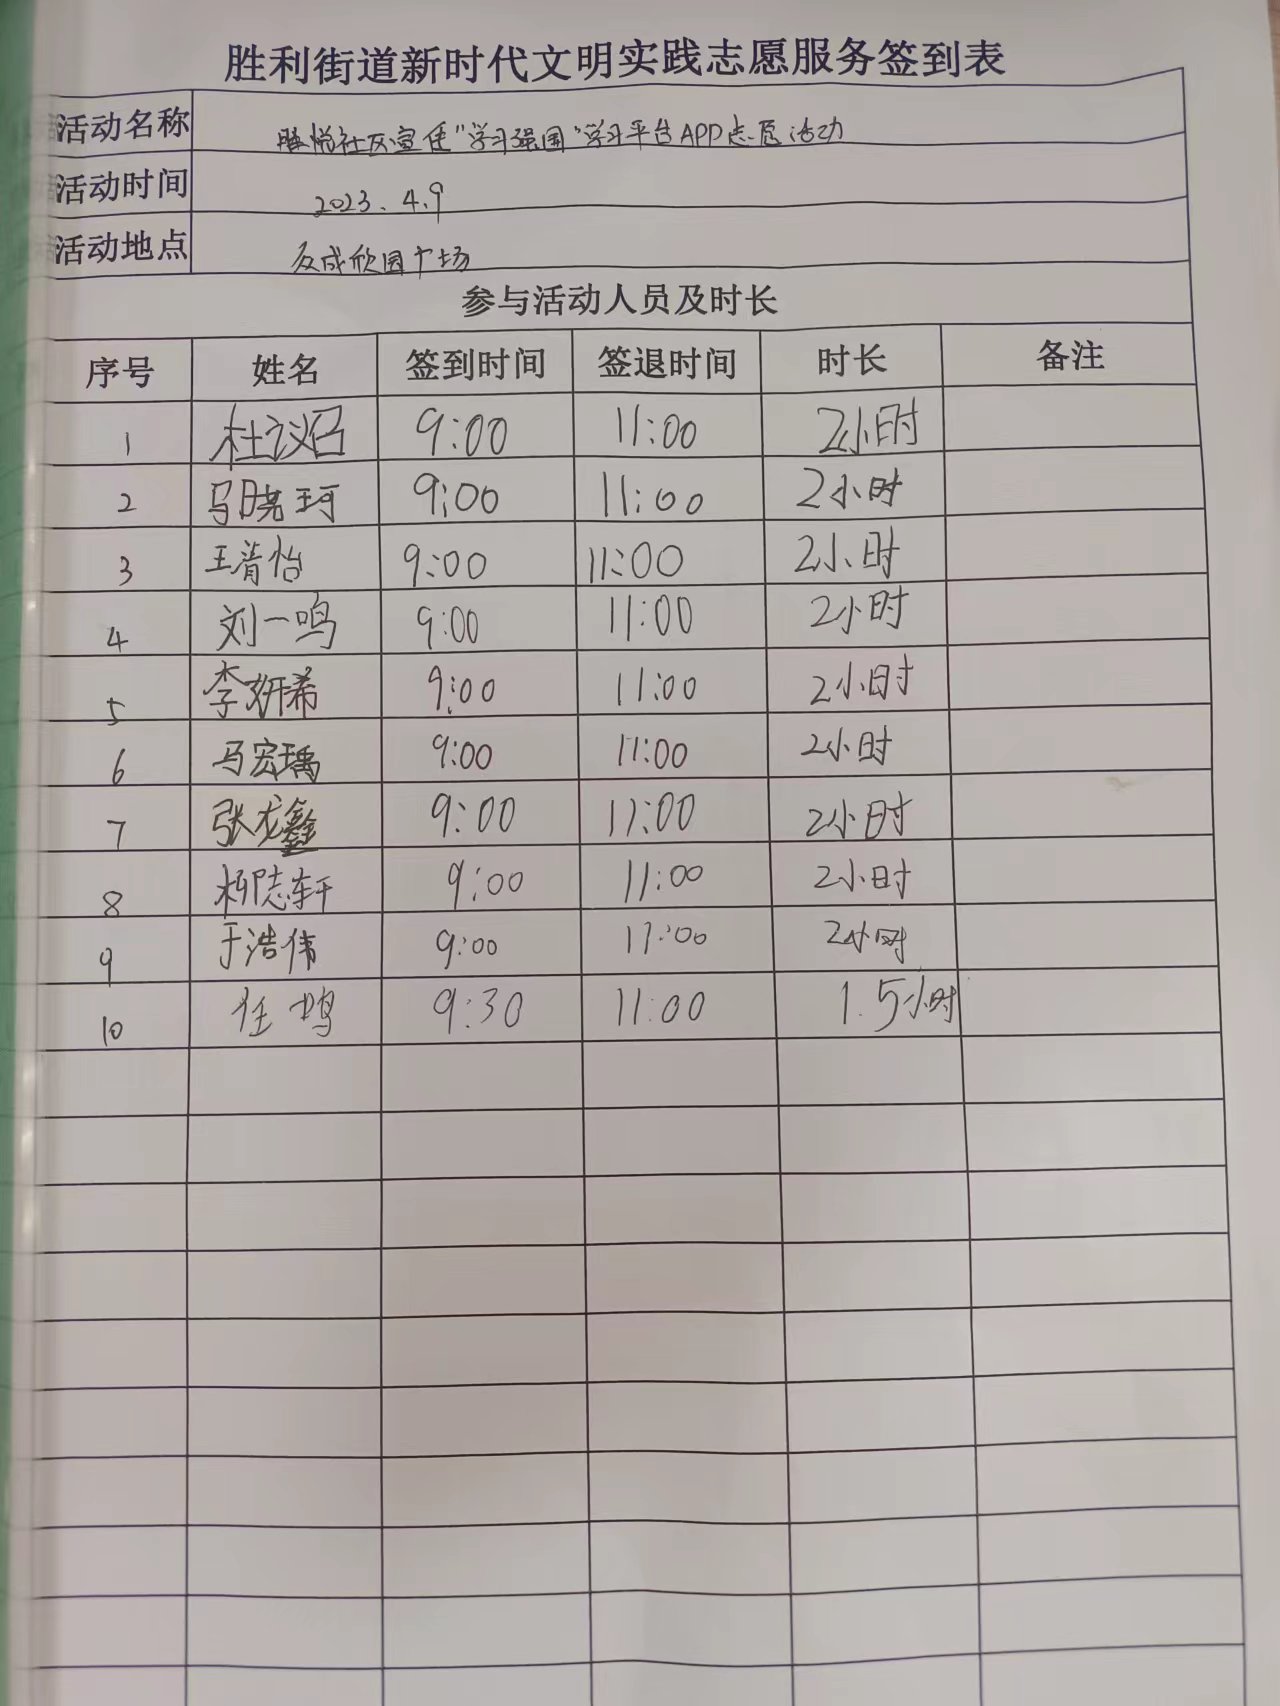 胜利街道新时代文明实践志愿服务签到表
活动名称 胜悦社区宣传"学习强国"学习平台APP志愿活动
活动时间 2023.4.9
活动地点 友成欣园广场
参与活动人员及时长
序号 姓名 签到时间 签退时间 时长 备注
1 杜议召 9:00 11:00 2小时
2 马晓珂 9:00 11:00 2小时
3 王清怡 9:00 11:00 2小时
4 刘一鸣 9:00 11:00 2小时
5 李妍希 9:00 11:00 2小时
6 马宏瑀 9:00 11:00 2小时
7 张龙鑫 9:00 11:00 2小时
8 杨志轩 9:00 11:00 2小时
9 于浩伟 9:00 11:00 2小时
10 任鸣 9:30 11:00 1.5小时